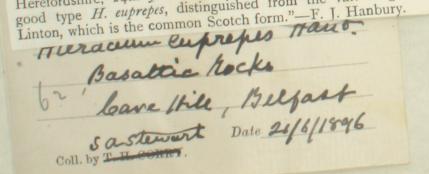 Herefordshire,
good type H. euprepes, distinguished from the
Linton, which is the common Scotch form."—F. J. Hanbury.
Hieracium euprepes Hanb.
Basaltic Rocks
Cave Hill, Belfast
S A Stewart Date 21/6/1896
Coll. by T. H. CORRY.